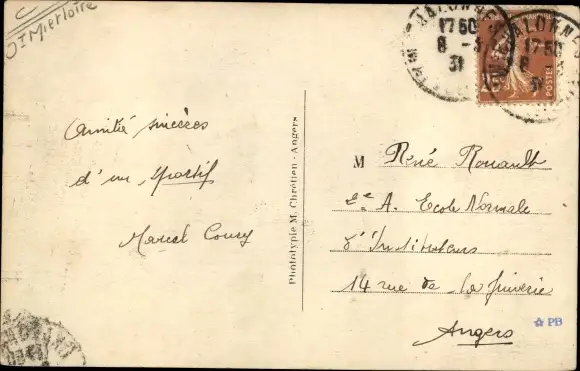 Amitié sincères
d'un sportif
Marcel
Phototypie M. Chrétien - Angers
M René Rouault
2e A. Ecole Normale
d'Instituteurs
14 rue de la Juiverie
Angers
17 50
8 - 3
31
17 50
8
31
POSTES
PB